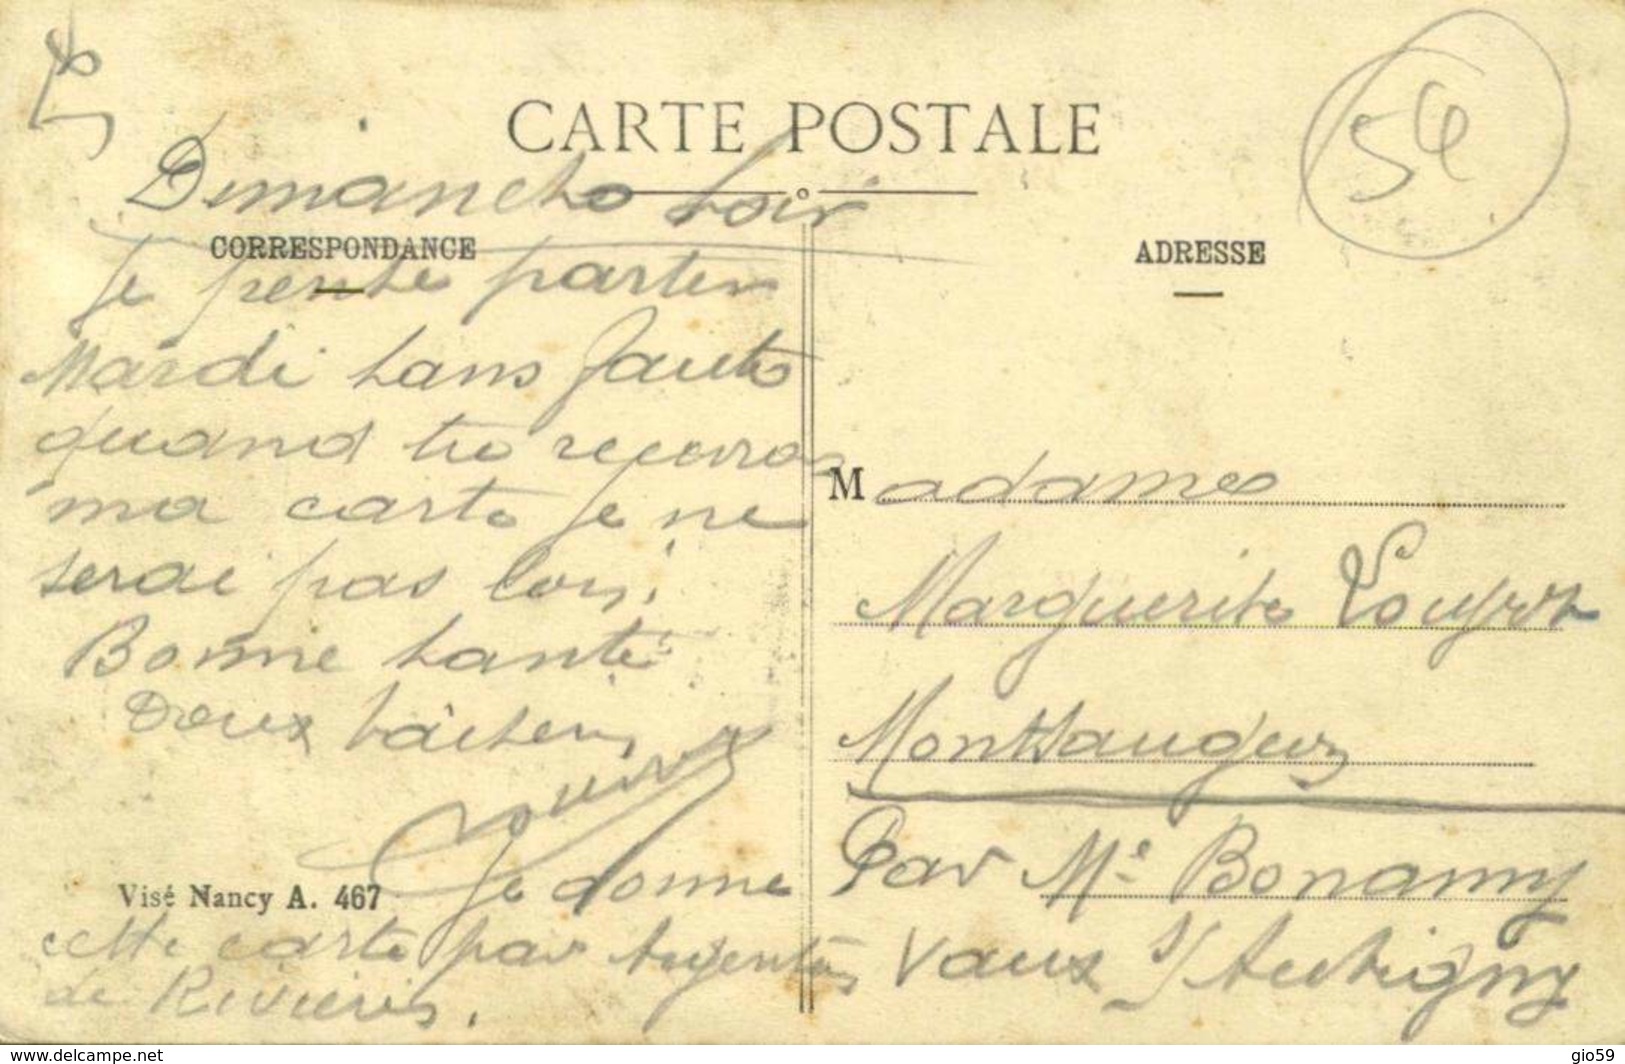 54
CARTE POSTALE
Dimanche Soir
CORRESPONDANCE
ADRESSE
Je pense partir
Mardi sans faute
quand tu recevras
ma carte je ne
serai pas loin.
Bonne Santé
Doux baisers
Je donne
Visé Nancy A. 467
cette carte par
de Rivières.
Madame
Marguerite
Montsaugeon
Par Mr Bonamy
Vaux s/ Aubigny
www.delcampe.net
gio59